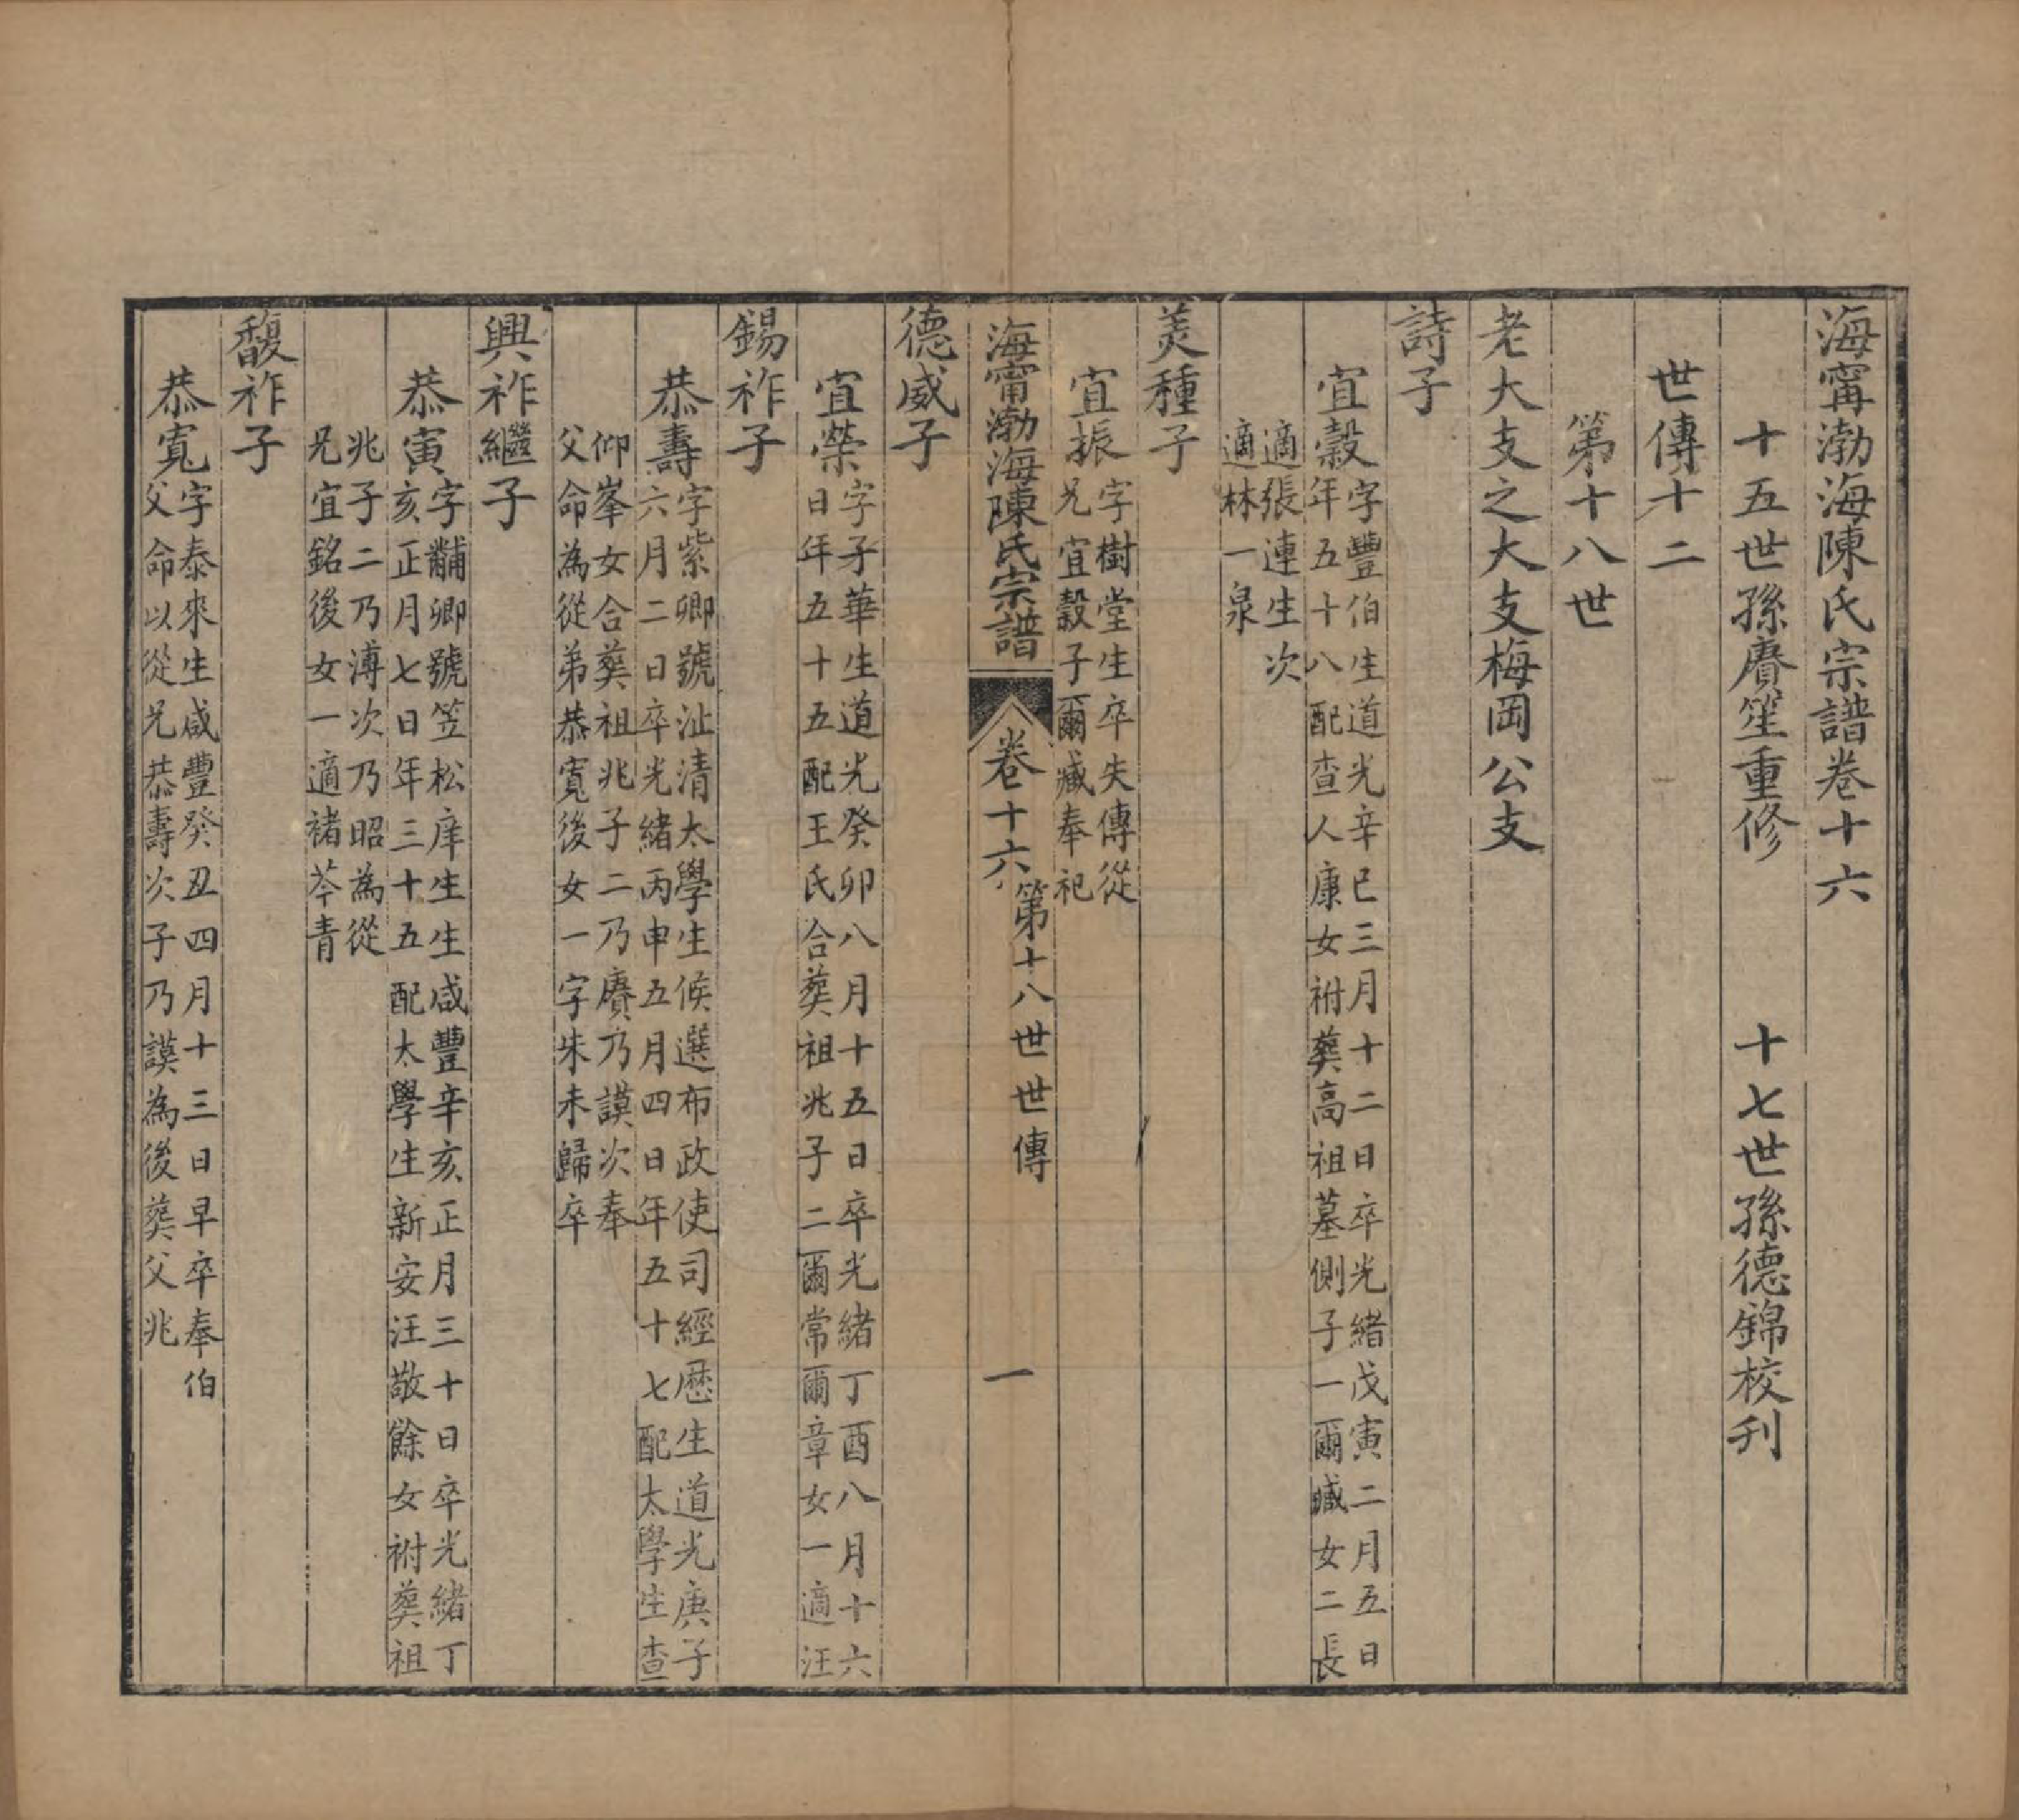 海甯渤海陳氏宗譜卷十六
十五世孫賡笙重修　十七世孫德錦校刋
世傳十二
第十八世
老大支之大支梅岡公支
詩子
宜穀字豐伯生道光辛巳三月十二日卒光緒戊寅二月五日
年五十八配查人康女祔葬高祖墓側子一爾臧女二長
適張連生次
適林一泉
美種子
宜振字樹堂生卒失傳從
兄宜穀子爾臧奉祀
海甯渤海陳氏宗譜　卷十六　第十八世世傳　一
德威子
宜榮字子華生道光癸卯八月十五日卒光緒丁酉八月十六
日年五十五配王氏合葬祖兆子二爾常爾章女一適汪
錫祚子
恭壽字紫卿號沚清太學生候選布政使司經歷生道光庚子
六月二日卒光緒丙申五月四日年五十七配太學生查
仰峯女合葬祖兆子二乃賡乃謨次奉
父命為從弟恭寬後女一字朱未歸卒
興祚繼子
恭寅字黼卿號笠松庠生生咸豐辛亥正月三十日卒光緒丁
亥正月七日年三十五配太學生新安汪敬餘女祔葬祖
兆子二乃溥次乃昭為從
兄宜銘後女一適褚芩青
馥祚子
恭寬字泰來生咸豐癸丑四月十三日早卒奉伯
父命以從兄恭壽次子乃謨為後葬父兆